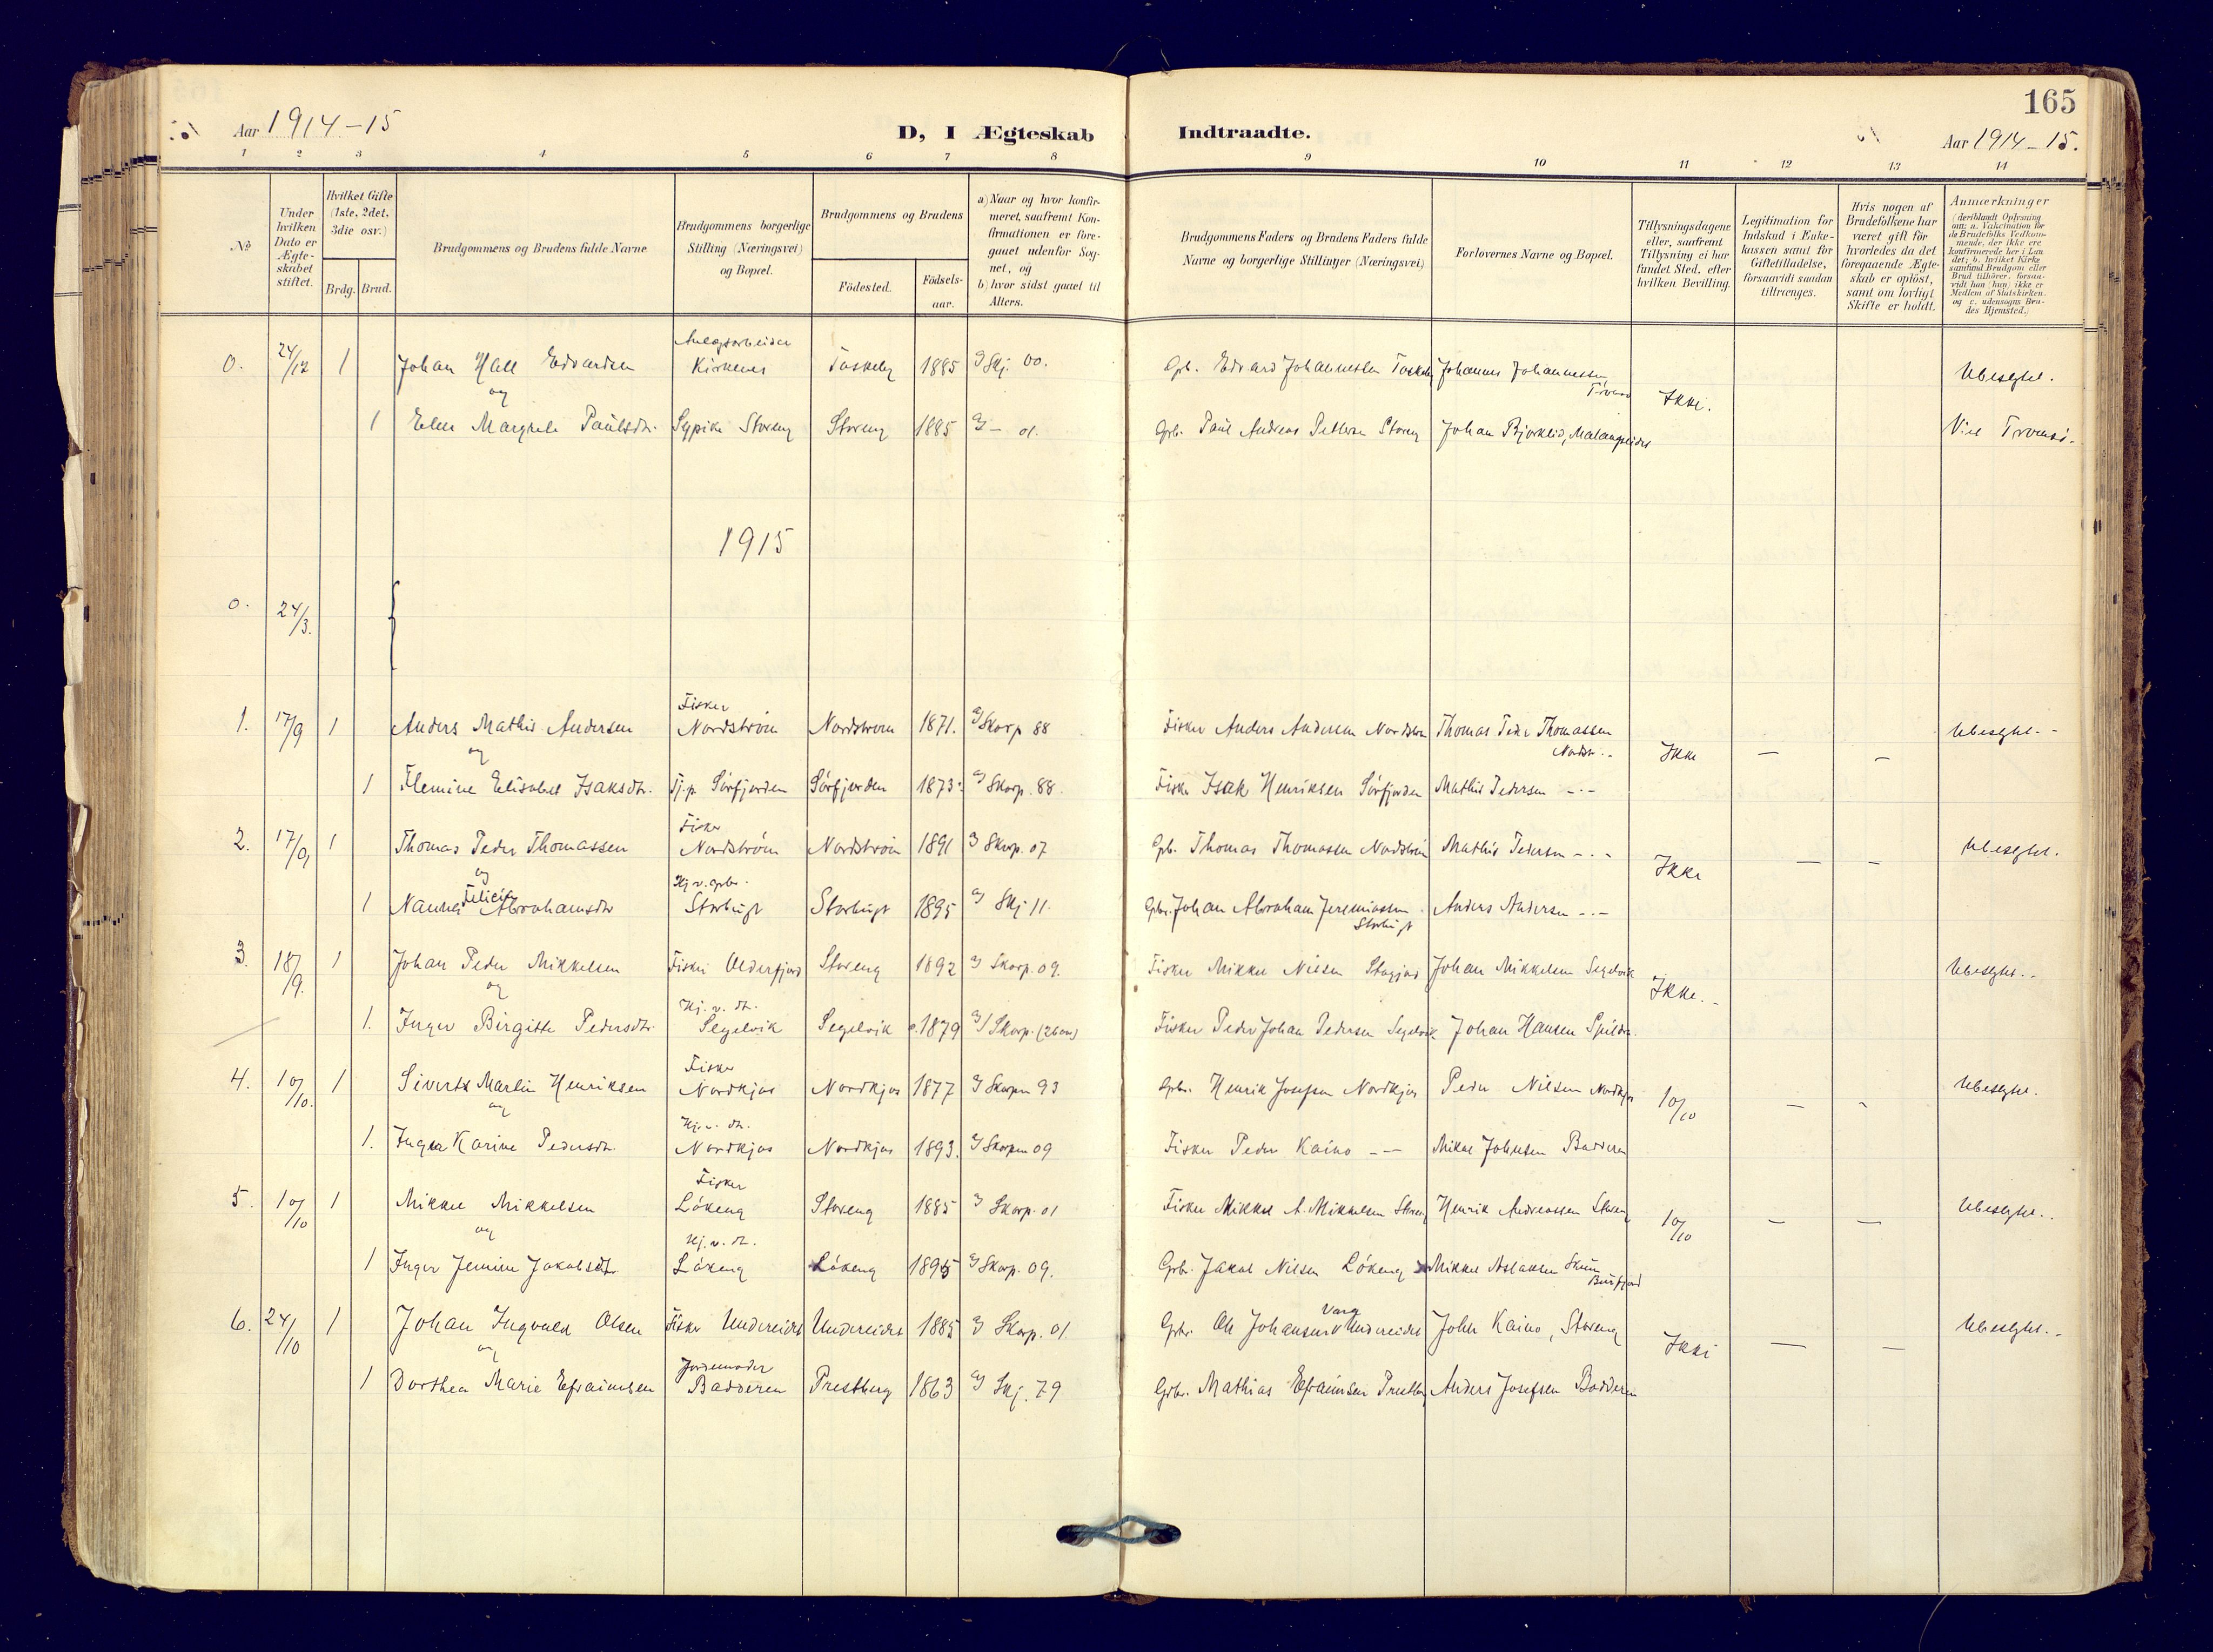 165
Aar 1914-15
D, I Ægteskab Indtraadte.
Aar 1914-15.
1 2 3 4 5 6 7 8 9 10 11 12 13 14
No
Under hvilken Dato er Ægteskabet stiftet.
Hvilket Gifte (1ste, 2det, 3die osv.)
Brdg. Brud.
Brudgommens og Brudens fulde Navne
Brudgommens borgerlige Stilling (Næringsvei) og Bopæl.
Brudgommens og Brudens
Födested.
Födsels-aar.
a) Naar og hvor konfirmeret, saafremt Konfirmationen er foregaaet udenfor Sognet, og
b) hvor sidst gaaet til Alters.
Brudgommens Faders og Brudens Faders fulde Navne og borgerlige Stillinger (Næringsvei)
Forlovernes Navne og Bopæl.
Tillysningsdagene eller, saafremt Tillysning ei har fundet Sted, efter hvilken Bevilling.
Legitimation for Indskud i Enkekassen samt for Giftetilladelse, forsaavidt saadan tiltrænges.
Hvis nogen af Brudefolkene har været gift för hvorledes da det foregaaende Ægteskab er oplöst, samt om lovligt Skifte er holdt.
Anmærkninger
(deriblandt Oplysning om: a. Vakcination for de Brudefolks Vedkommende, der ikke ere konfirmerede her i Landet; b. hvilket Kirkesamfund Brudgom eller Brud tilhörer, forsaavidt han (hun) ikke er Medlem af Statskirken, og c. udensogns Brudes Hjemsted.)
0. 24/12 1 Johan Hall Edvardsen Anlægsarbeider Kirkenes 1885 Skj. 00. Gb. Edvard Johannessen Johannes Johannessen Ikke. Ubeslgtet.
og
1 Elen Margrete Paulsdtr. Storeng Storeng 1885 - 01. Gbr. Paul Andreas Pettersen Storeng Johan Bjorklid, Malangseidet Viet Tromsö.
1915
0. 24/3.
1. 17/9 1 Anders Mathis Andersen Fisker Nordström Nordström 1871. Skorp 88 Fisker Anders Andersen Nordström Thomas Peder Thomassen Nordstr. Ikke — — Ubeslgtet.
og
1 Flemine Elisabet Isaksdtr. Tj.p. Sörfjorden Sörfjorden 1873. Skorp. 88. Fisker Isak Henriksen Sörfjorden Mathis Pedersen -.-
2. 17/9 1 Thomas Peder Thomassen Fisker Nordström Nordström 1891 Skorp. 07 Gbr. Thomas Thomassen Nordström Mathis Pedersen -.- Ikke — — Ubeslgtet.
og
1 Nanna Felicia Abrahamsdtr Hj. v. Gbr. Storbugt Storbugt 1895 Skj 11. Gbr. Johan Abraham Jeremiassen Storbugt Anders Andersen -.-
3. 18/9. 1 Johan Peder Mikkelsen Fisker Olderfjord Storeng 1892 Skorp. 09. Fisker Mikkel Nilsen Johan Mikkelsen Segelvik Ikke. Ubeslgtet.
og
1. Inger Birgitte Pedersdtr. Hj. v. dt. Segelvik Segelvik 1879 Skorp. Fisker Peder Johan Pedersen Segelvik Johan Hansen Spildra.
4. 10/10. 1 Siverts Martin Henriksen Fisker Nordkjos Nordkjos 1877 Skorpen 93 Gbr. Henrik Josefsen Nordkjos Peder Nilsen Nordkjos 10/10 — - Ubeslgtet.
og
1. Inger Karine Pedersdtr. Hj. v. dt. Nordkjos Nordkjos 1893. Skorpen 09 Fisker Peder Kaino -- Mikal Johnsen Badderen
5. 10/10 1 Mikkel Mikkelsen Fisker Lökeng Storeng 1885 Skorp. 01 Fisker Mikkel A. Mikkelsen Storeng Henrik Andreassen Storeng 10/10 — — Ubeslgtet.
og
1 Inger Jemine Jakobsdtr. Hj. v. dt. Lökeng Lökeng 1895 Skorp. 09. Gbr. Jakob Nilsen Lökeng Mikkel Aslaksen Burfjord
6. 24/10 1 Johan Ingvald Olsen Fisker Undereidet Undereidet 1885 Skorp. 01 Gbr. Ole Johansen Varg Undereidet John Kaino, Storeng Ikke — — Ubeslgtet.
og
1 Dorthea Marie Efraimsen Jordemoder Badderen Prestberg 1863 Skj. 79 Gbr. Mathias Efraimsen Prestberg Anders Josefsen Badderen